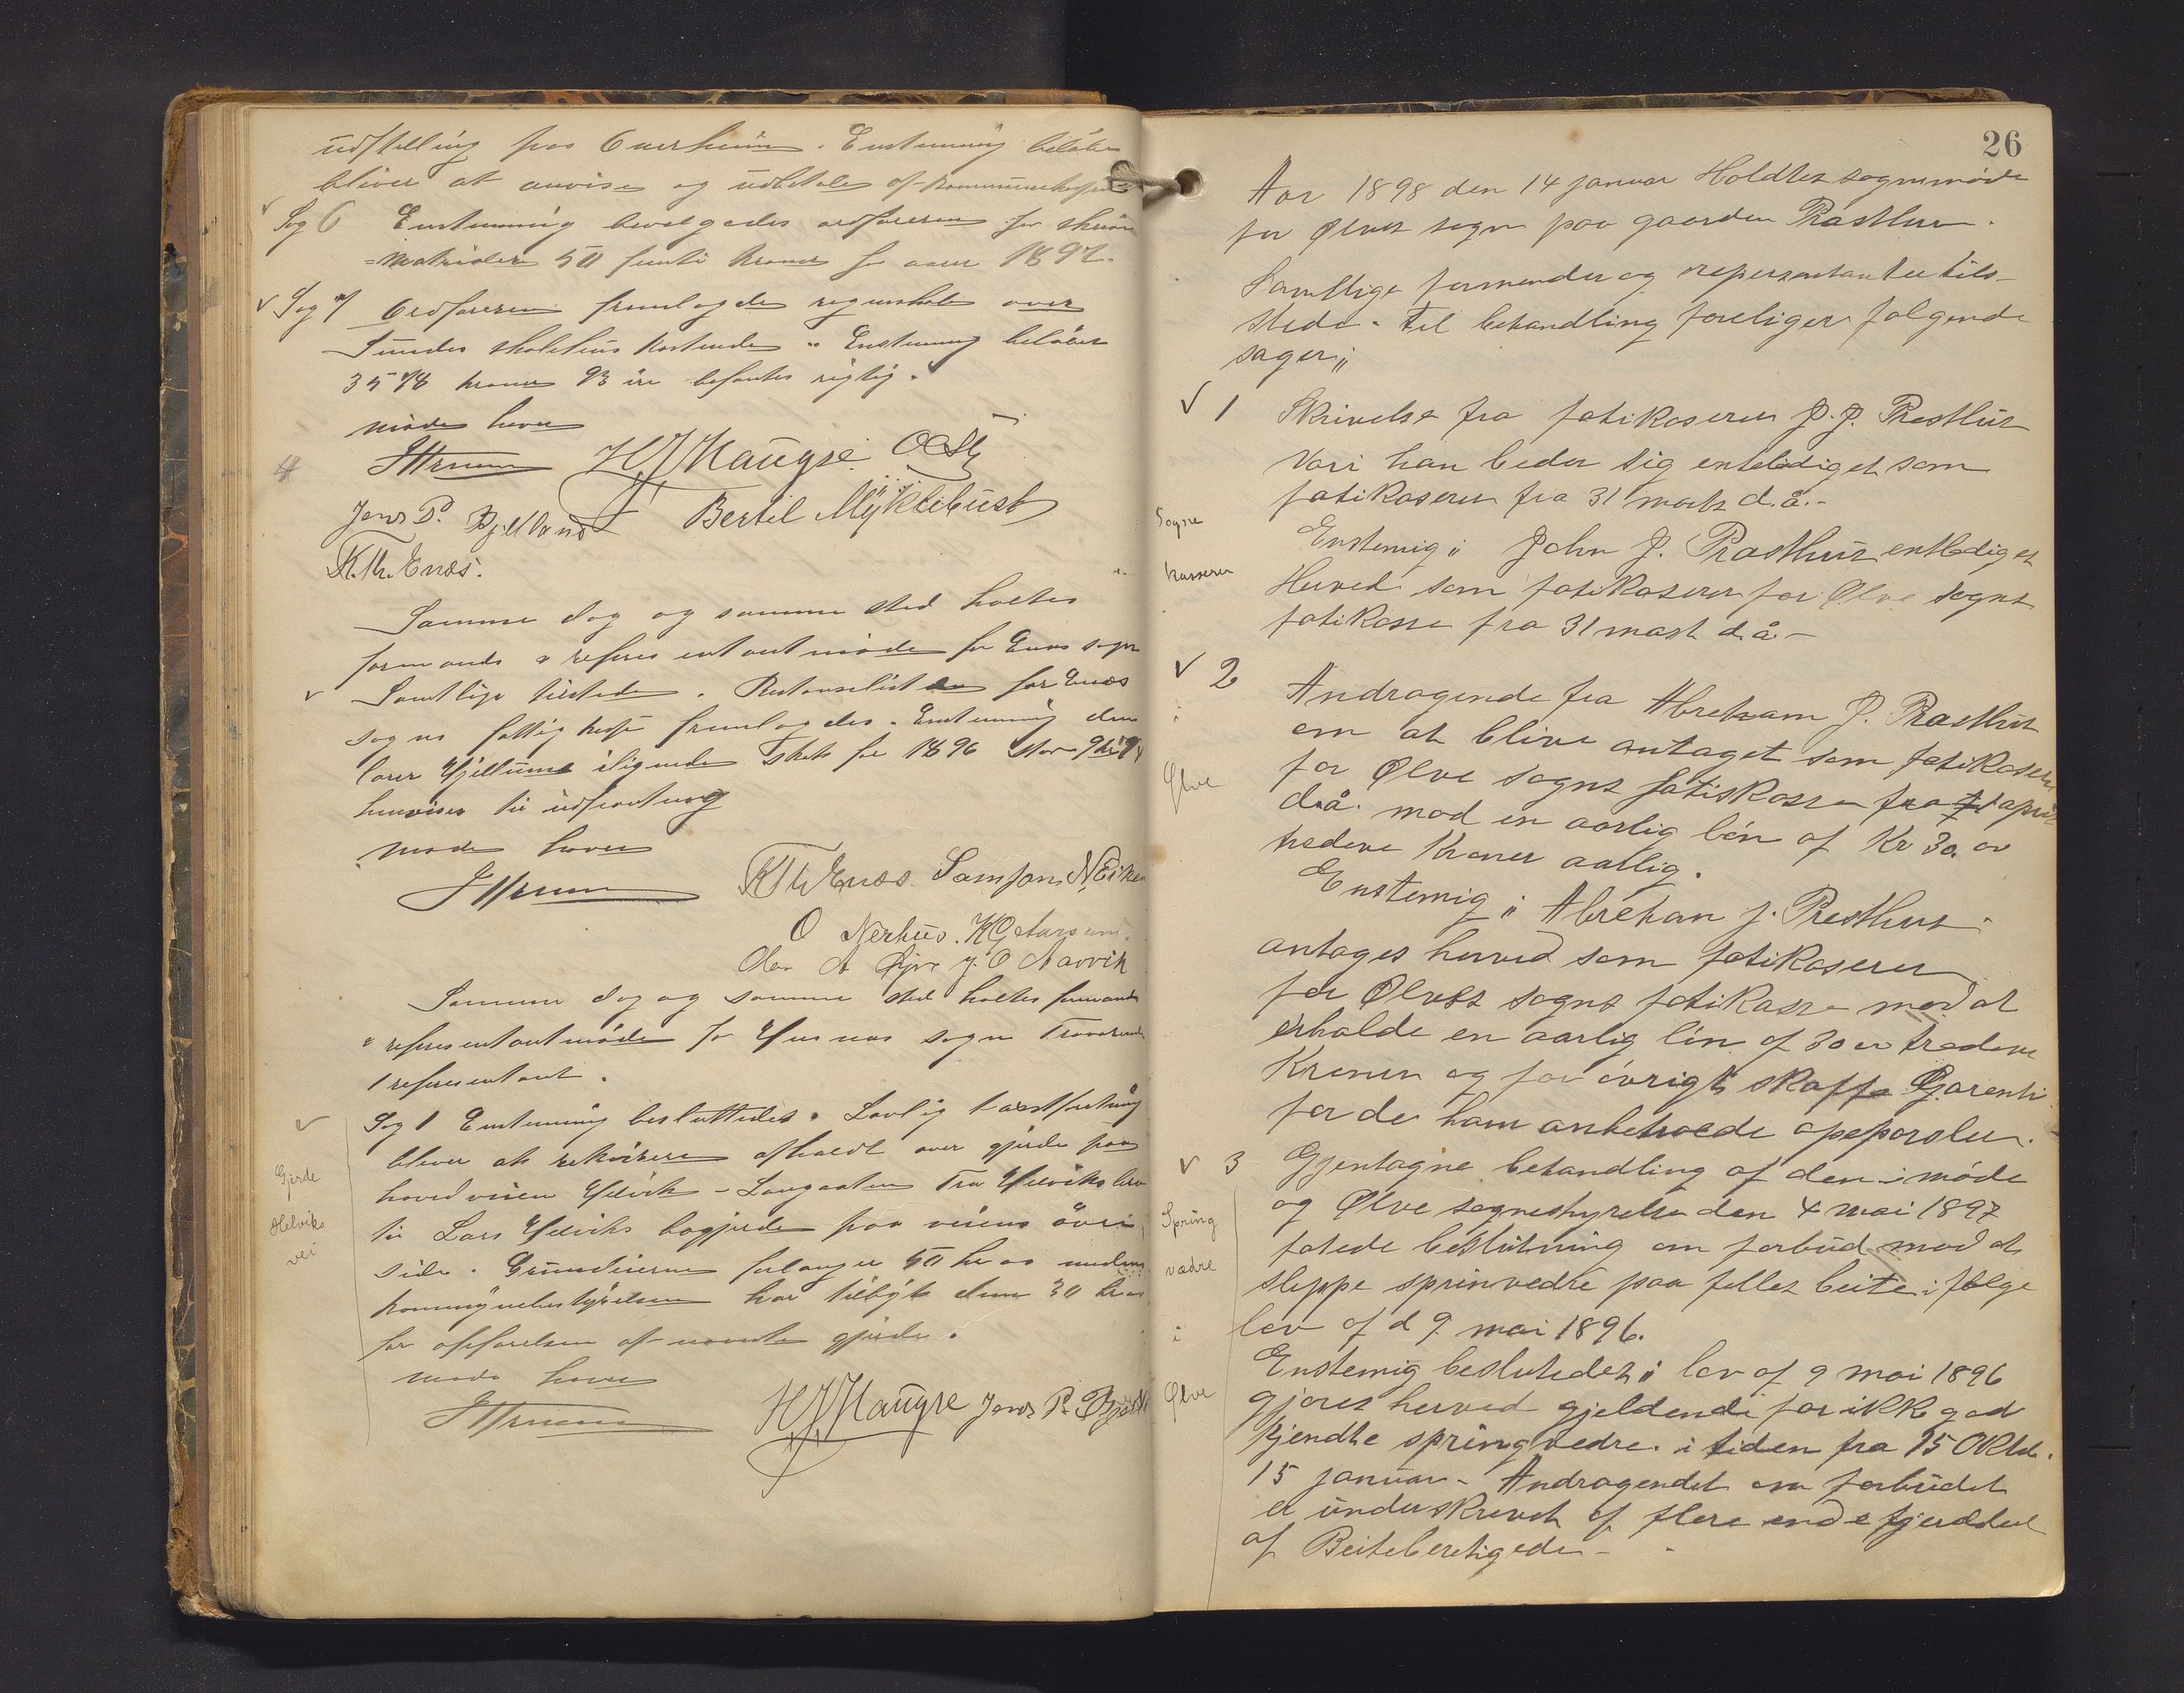 udstilling paa Kvarheim. Enstemmig beløbet
bliver at anvise og udbetales af kommunekassen
Sag 6 Enstemmig bevilgedes ordføreren for skriv-
=matrialier 50 femti Kroner for aaret 1897.
Sag 7 Ordføreren fremlagde regnskabet over
Sundes skolehus kostende. Enstemmig beløbet
3578 kroner 93 øre befantes rigtig.
møde hevet
HJHaugse
Jens P. Bjelland Bertil Myklebust
K.Th. Enæs.
Samme dag og samme sted holtes
formands & represientantmøde for Enæs sogn
Samtlige tilstede. Restanselisten for Enæs
sogns fattigkasse fremlagdes. Enstemmig den
lorer ilignede skat for 1896
henvises til udpantning
møde hevet
KThEnæs. Samson N Eiken
O Nerhus. K
Ola A J. O Narvik
Samme dag og samme sted holtes formands
& represientantmøde for Husnæs sogn Fraværende
1 represientant.
Sag 1 Enstemmig besluttedes. Lovlig taxstforretning
bliver at rekvirere afholdt over gjerde paa
hovedveien Helvik – Langaaten fra Helviks
til Lars Helviks bøgjerde paa veiens øvre
side. Grundeierne forlanger 50 øre medens
kommunebestyrelsen har tilbyt dem 30 øre
for opførelsen af nævnte gjerde.
møde hevet
HJHaugse Jens P. Bjelland
Gjerde
Helviks
vei
26
Aar 1898 den 14 januar Holdtes sognemøde
for Ølves sogn paa gaarden Præsthus.
Samtlige formender og repersentanter tils-
stede. til behandling foreliger følgende
sager„
1 Skrivelse fra fatikaserer J. J. Presthus
Vori han beder sig entlediget som
fatikaserer fra 31 marts d.å.-
Enstemig„ John J. Præsthus entlediges
Herved som fatikaserer for Ølve sogns
fatikasse fra 31 mart d.å -
Sogne
kasserer
i
Ølve
2 Andragende fra Abreham J. Præsthus
om at blive antaget som fatikaserer
for Ølve sogns fatiskasse fra 1 april
d.å. mod en aarlig lön af Kr 30. er
tredeve Kroner aarlig.
Enstemig„ Abreham J. Presthus
antages herved som fatikaserer
for Ølves sogns fatikasse mod at
erholde en aarlig lön af 30 er tredeve
Kroner og for øvrigt skaffe Gjarenti
for de ham anbetroede opeporsler.
3 Gjentagne behandling af den i møde
og Ølve sognestyrelse den 4 mai 1897
fatede beslutning om forbud mod at
sleppe sprinvedre paa felles beite i følge
lov af d 9 mai 1896.
Enstemig beslutedes„ lov af 9 mai 1896
gjøres herved gjeldende for ikke god
kjendte springvedre. i tiden fra 15 Oktb.
15 januar – Andragendet om forbudet
er underskrevet af flere end e fjerdedel
af Beiteberetigede –
Spring
vædre
i
Ølve